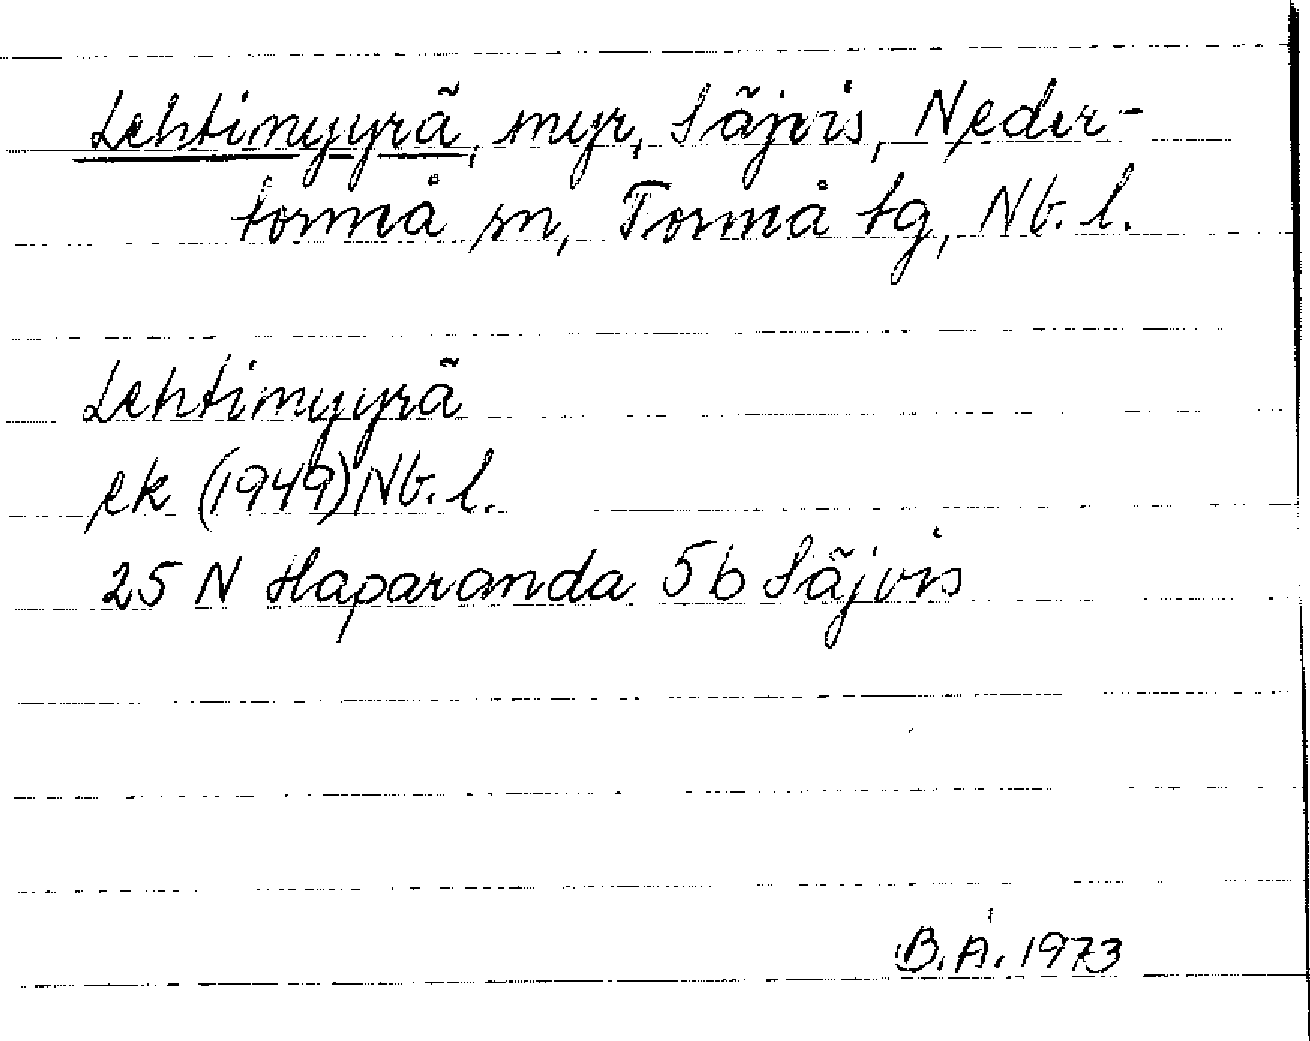 Lehtimyyrä, myr, Säjvis, Neder-
torneå sn, Torneå tg, Nb. l.
Lehtimyyrä
ek (1949) Nb. l.
25 N Haparanda 5b Säjvis
B.Å. 1973